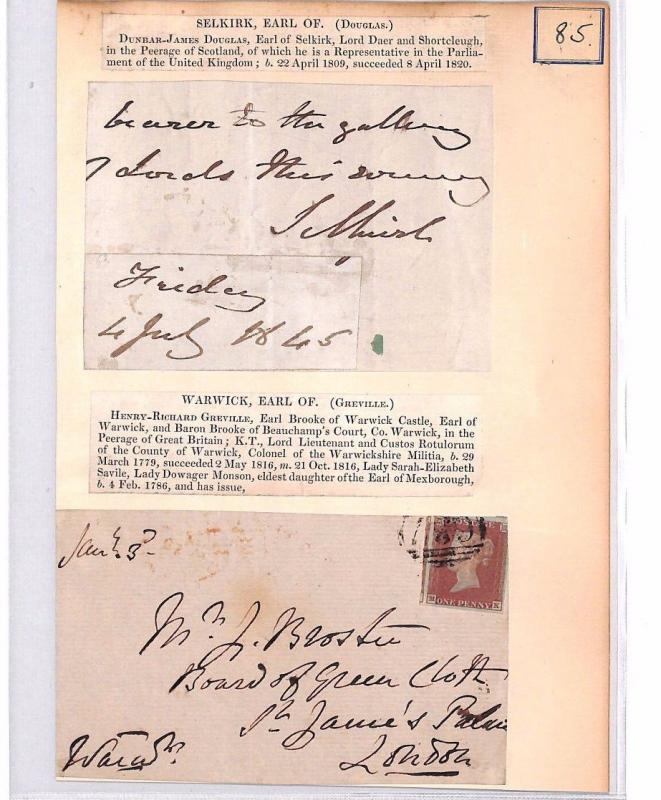 SELKIRK, EARL OF. (Douglas.)
Dunbar-James Douglas, Earl of Selkirk, Lord Daer and Shortcleugh,
in the Peerage of Scotland, of which he is a Representative in the Parlia-
ment of the United Kingdom; b. 22 April 1809, succeeded 8 April 1820.
85.
bearer to the gallery
Lords this evening
Selkirk
Friday
4 July 1845
WARWICK, EARL OF. (Greville.)
Henry-Richard Greville, Earl Brooke of Warwick Castle, Earl of
Warwick, and Baron Brooke of Beauchamp's Court, Co. Warwick, in the
Peerage of Great Britain; K.T., Lord Lieutenant and Custos Rotulorum
of the County of Warwick, Colonel of the Warwickshire Militia, b. 29
March 1779, succeeded 2 May 1816, m. 21 Oct. 1816, Lady Sarah-Elizabeth
Savile, Lady Dowager Monson, eldest daughter of the Earl of Mexborough,
b. 4 Feb. 1786, and has issue,
Jany. 3d
POSTAGE
ONE PENNY K
Mr. J. Broster
Board of Green Cloth
St. James's Palace
London